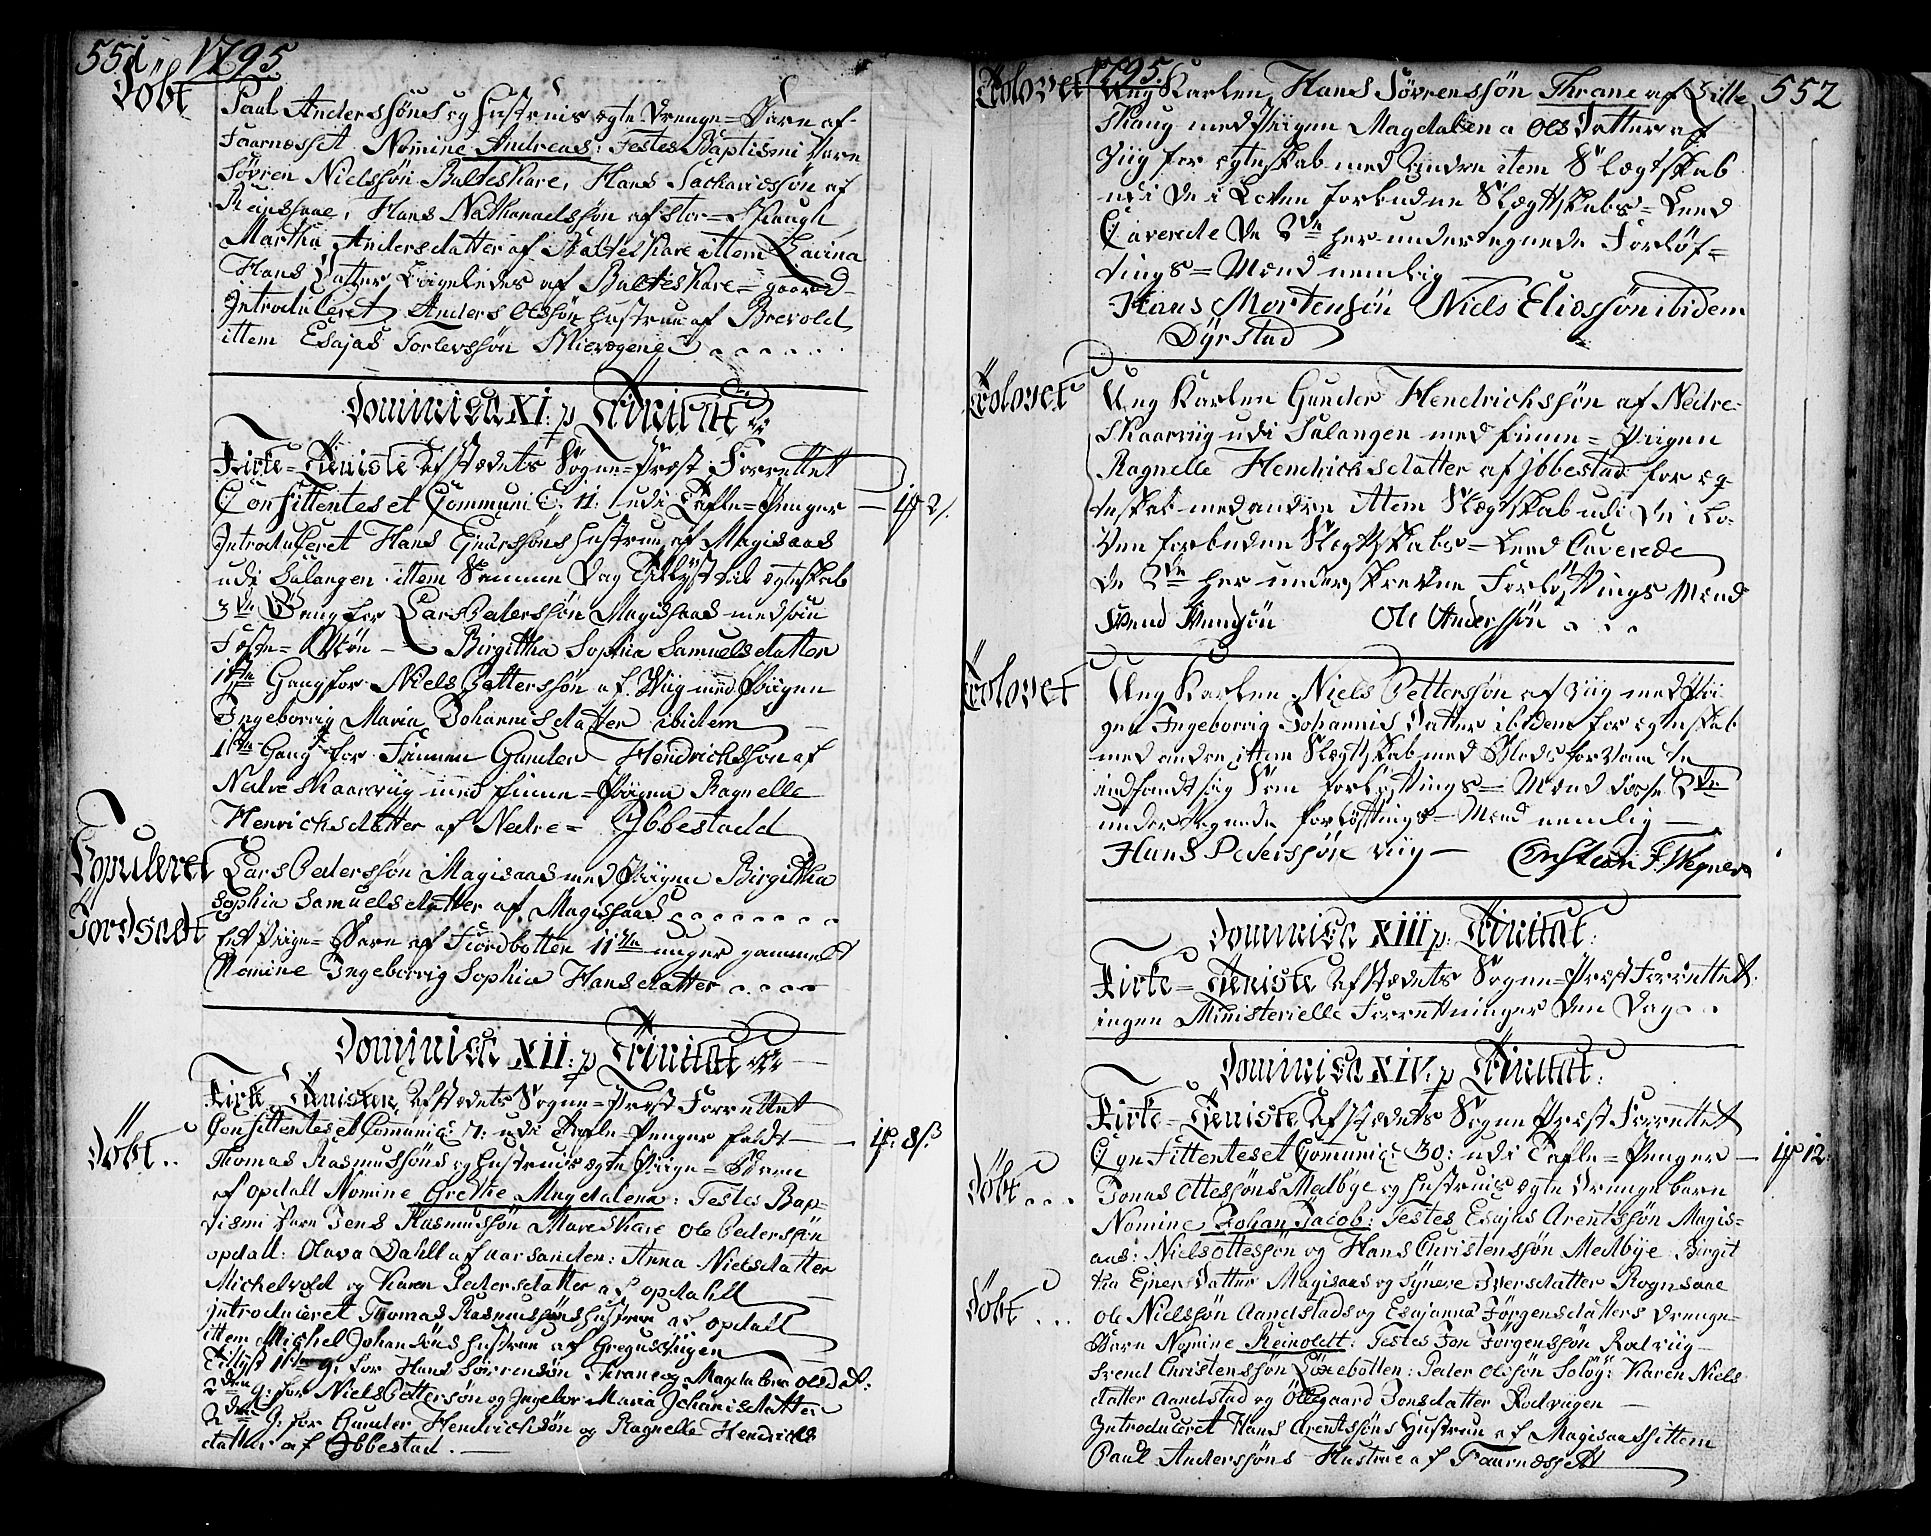 551 1795
Döbt
Paul Anderssöns og Hustrues ægte Drenge=Barn af
Faarnæsset. Nomine Andreas: Testes Baptismi vare
Sövren Nielssön Balteskare, Hans Sachariæssön af
Hans Nathanaelssön af stor=Skaugh
Martha Andersdatter af Balteskare ittem Lavina
Hans Datter Liigeledes af Balteskare=gaard
Introduceret Anders Olssön Hustrue af Brevold
ittem Esajas Torlevssön
Dominica XI: p Trinitat:
Kirke=Tieniste af stædets Sogne=Præst Forrettet
Confittentes et Communic: 11: udi Tafle=Penger — 1 2
Introduceret Hans Enerssöns Hustrue af Magisaas
udi Salangen. ittem Samme Dag Tillyst til ægteskab
3die Gang for Lars Pederssön Magisaas med sin
Feste=Möe — Birgittha Sophia Samuelsdatter
1ste Gang for Niels Petterssön af Viig med Piigen
Ingeborrig Maria Johannisdatter ibidem
1ste Gang for Finnen Gunder Hendrichssön af
Nedre Skaarviig med finne=Piigen Ragnelle
Henrichsdatter af Nedre= Ybbestadd
Copuleret
Lars Pederssön Magisaas med Piigen Birgittha
Sophia Samuelsdatter af Magisaas
Jordsadt
Et Piige=Barn af Fiordbotten 11 uger gammelt
Nomine Ingeborrig Sophia Hansdatter
Dominica XII: p Trinitat
Kirke Tienisten af stædets Sogne=Præst Forrettet
Confittentes et Comunic: 7: udi Tafle=Penger faldt — 1 8 ß
Döbt
Thomas Rasmussöns og Hustrues ægte Piige=Barn
af opdall Nomine Grethe Magdalena: Testes Bap-
tismi vare Jens Rasmussön Mareskare ole Pederssön
opdall: Olava Dahll af aarsanden: Anna Nielsdatter
Michelvold og Karen Pedersdatter af opdahll
Introduceret Thomas Rasmussöns Hustrue af opdall
ittem Michel Johansöns Hustrue af Gregussviigen
Tillyst 1ste g: for Hans Sörrensön Thrane og Magdalena olsdat:
2den g: for Niels Pettersön og Ingebor Maria Johanisdatter
2den G: for Gunder Hendrichsön og Ragnelle Hendrichs
datter af Ybbestad.
1795. 552
Trolovet
Ung Karlen Hans Sövrenssön Thrane af Lille
Skaug med Piigen Magdalena Ols Datter af
Viig for ægteskab med andre item Slægtskab
udi de i Loven forbudne Slægtskabs=Leed
Caverede de 2de her undertegnede Forlöf=
tings=Mænd nemlig
Hans Mortensön Niels Eliessön ibidem
Dyrstad
Trolovet
Ung Karlen Gunder Hendrichssön af Nedre
Skaarviig udi Salangen med finne=Piigen
Ragnelle Hendrichsdatter af Ybbestad for æg-
teskab med andre ittem Slægtskab udi de i Lo-
ven forbudne Slægtskabs=Leed Caverede
de 2de her underskrevne Forlöftings Mænd
Svend Svendsön Ole Anderssön
Trolovet
Ung Karlen Niels Petterssön af Viig med Pii-
gen Ingeborrig Johannis Datter ibidem for ægteskab
med andre ittem Slægtskab med Blods forvante
indfandt sig som forlöftings=Mænd disse 2de
undertegnede forlöftings=Mænd nemlig
Hans Pederssön viig — Christian F. Wegner
Dominica XIII p: Trinitat:
Kirke=Tieniste af stædets Sogne=Præst Forrettet.
ingen Ministerielle Forretninger den Dag
Dominica XIV: p Trinitat:
Kirke=Tieniste af stædets Sogne Præst Forrettet
Confittentes et Comunic: 30: udi Tafle=Penger — 1 12
Döbt
Jonas Ottessöns Medbye og Hustrues ægte Drenge barn
Nomine Johan Jacob: Testes Esajas Arentssön Magis=
aas: Niels ottessön og Hans Christenssön Medbye: Birgit
tha Ener Datter Magisaas og Synere Iversdatter Rognsaae
Döbt
Ole Nielssön Aandstads og Esajanna Jörgensdatters Drenge-
Barn Nomine Reinoldt: Testes Jon Jörgenssön Rodviig
Svend Christenssön Löxebotten: Peder olssön Solöy: Karen Niels
datter Aandstad og Ollegaard Jonsdatter Rodviigen
Introduceret Hans Arentssöns Hustrue af Magisaas ittem
Paul Anderssöns Hustrue af Faarnæsset